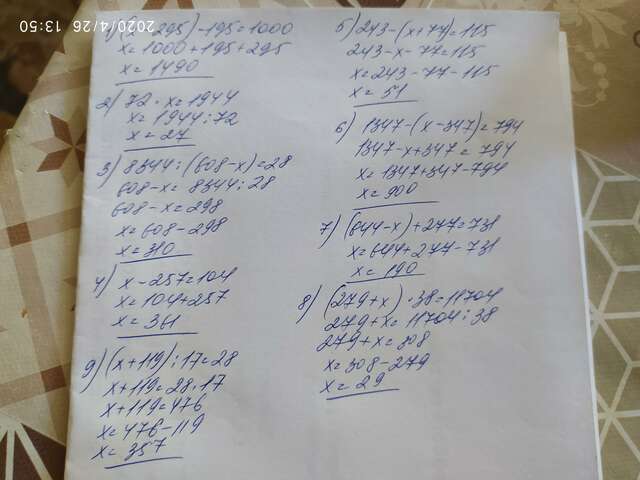 2020/4/26 13:50
1) (x-295)-195=1000
x=1000+195+295
x=1490
2) 72·x=1944
x=1944:72
x=27
3) 8344:(608-x)=28
608-x=8344:28
608-x=298
x=608-298
x=310
4) x-257=104
x=104+257
x=361
9) (x+119):17=28
x+119=28·17
x+119=476
x=476-119
x=357
5) 243-(x+77)=115
243-x-77=115
x=243-77-115
x=51
6) 1347-(x-347)=794
1347-x+347=794
x=1347+347-794
x=900
7) (644-x)+277=731
x=644+277-731
x=190
8) (279+x)·38=11704
279+x=11704:38
279+x=308
x=308-279
x=29